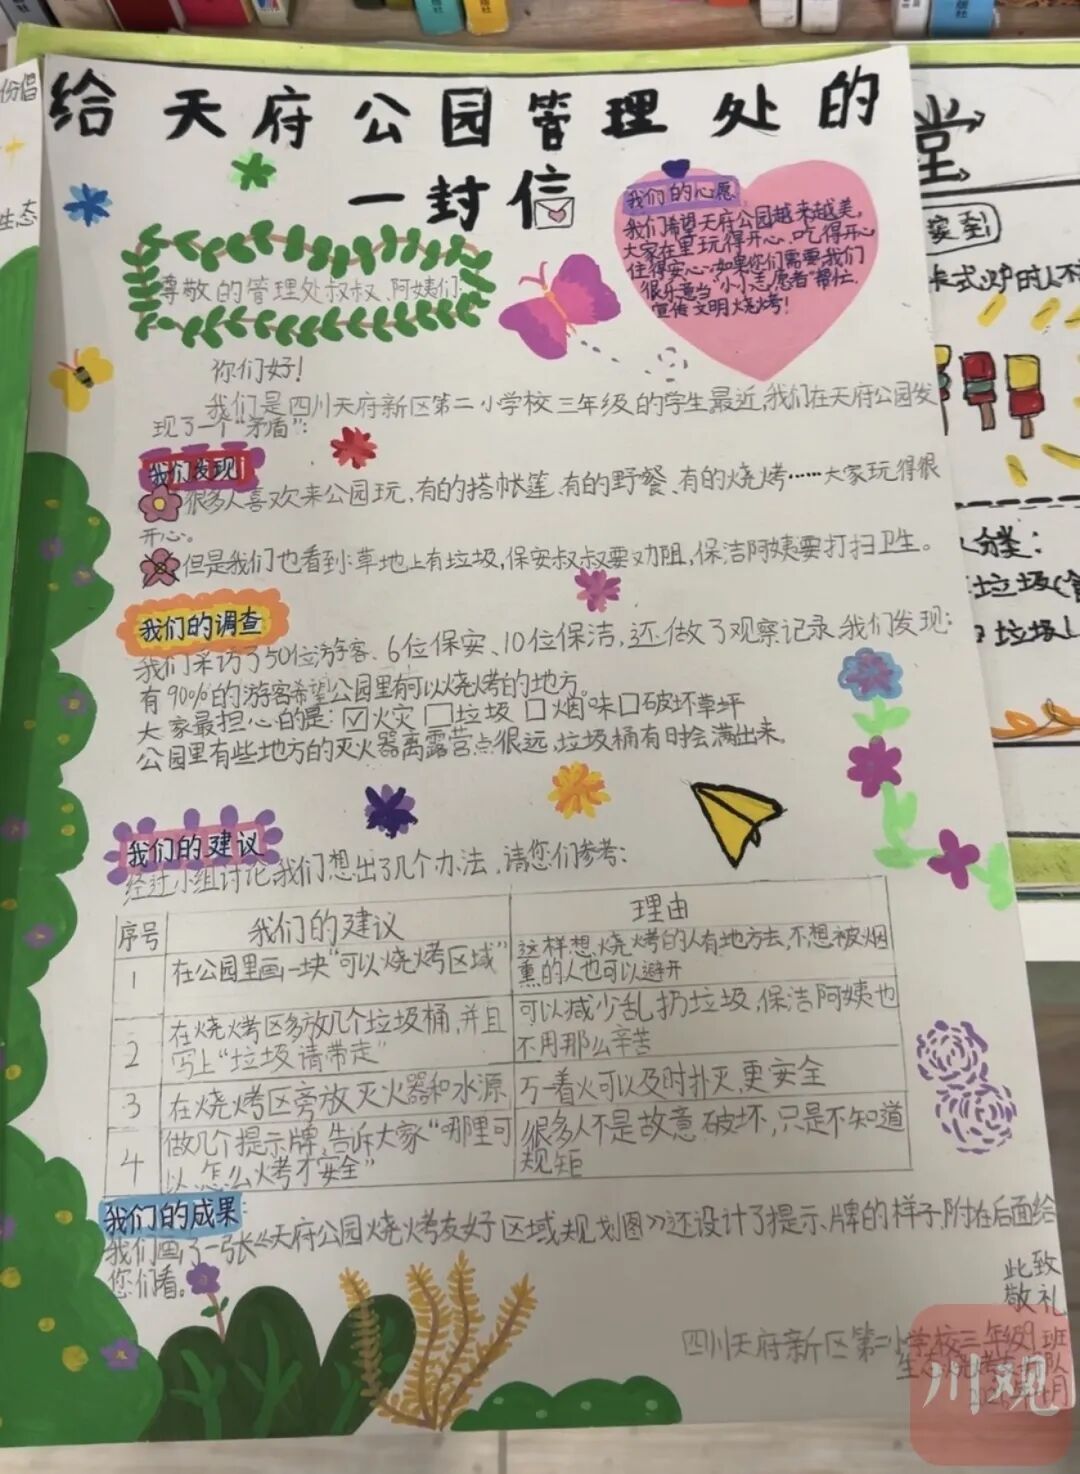 给天府公园管理处的
一封信
我们的心愿
我们希望天府公园越来越美,
大家在里玩得开心、吃得开心
住得安心。如果你们需要,我们
很乐意当"小小志愿者"帮忙
宣传文明烧烤!
尊敬的管理处叔叔、阿姨们:
你们好!
我们是四川天府新区第二小学校三年级的学生,最近,我们在天府公园发
现了一个"矛盾":
我们发现
很多人喜欢来公园玩、有的搭帐篷、有的野餐、有的烧烤……大家玩得很
开心。
但是我们也看到:草地上有垃圾,保安叔叔要劝阻,保洁阿姨要打扫卫生。
我们的调查
我们采访了50位游客、6位保安、10位保洁,还做了观察记录,我们发现:
有90%的游客希望公园里有可以烧烤的地方。
大家最担心的是:☑火灾 □垃圾 □烟味□破坏草坪
公园里有些地方的灭火器离露营点很远,垃圾桶有时会满出来。
我们的建议
经过小组讨论,我们想出了几个办法,请您们参考:
序号 我们的建议 理由
1 在公园里画一块"可以烧烤区域" 这样想烧烤的人有地方去,不想被烟
熏的人也可以避开
2 在烧烤区多放几个垃圾桶,并且
写上"垃圾请带走"
可以减少乱扔垃圾,保洁阿姨也
不用那么辛苦
3 在烧烤区旁放灭火器和水源 万一着火可以及时扑灭,更安全
4 做几个提示牌,告诉大家"哪里可
以,怎么火考才安全"
很多人不是故意破坏,只是不知道
规矩
我们的成果
我们画了一张《天府公园烧烤友好区域规划图》还设计了提示牌的样子,附在后面给
您们看。
此致
敬礼
四川天府新区第二小学校三年级9班
川观
份倡
生态
堂
卡式炉时人不
分类:
垃圾
垃圾